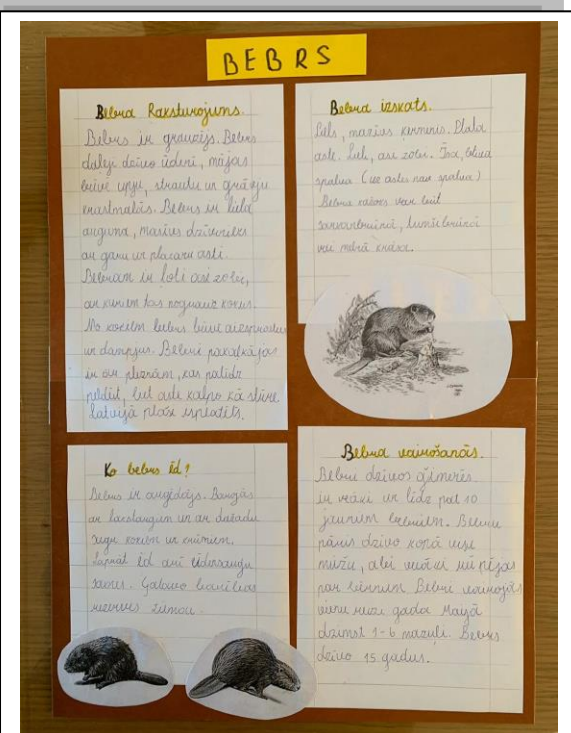 BEBRS
Bebra Raksturojums.
Bebrs ir grauzējs. Bebrs
daļēji dzīvo ūdenī, mājas
būvē upju, strautu un grāvju
krastmalās. Bebrs ir liela
auguma, masīvs dzīvnieks
ar garu un plakanu asti.
Bebram ir ļoti asi zobi,
ar kuriem tas nograuž kokus.
No kokiem bebrs būvē aizsprostus
un dambjus. Bebra pakaļkājas
ir ar pleznām, kas palīdz
peldēt, bet aste kalpo kā stūre
Latvijā plaši izplatīts.
Bebra izskats.
Liels, masīvs ķermenis. Plata
aste. Lieli, asi zobi. Īsa, bieza
spalva (uz astes nav spalva)
Bebra krāsa var būt
sarkanbrūnā, tumši brūnā
vai melnā krāsā.
Ko bebrs ēd?
Bebrs ir augēdājs. Barojas
ar lakstaugiem un ar dažādu
sugu kokiem un krūmiem.
Labprāt ēd arī ūdensaugu
saknes. Gatavo barības
rezerves ziemai.
Bebra vairošanās.
Bebru dzīvos ģimenēs
ir vecāki un līdz pat 10
jauniem bebriem. Bebru
pāris dzīvo kopā visu
mūžu, abi vecāki rūpējas
par bērniem Bebri vairojās
vienu reizi gadā Maijā
dzimst 1-6 mazuļi. Bebrs
dzīvo 15 gadus.